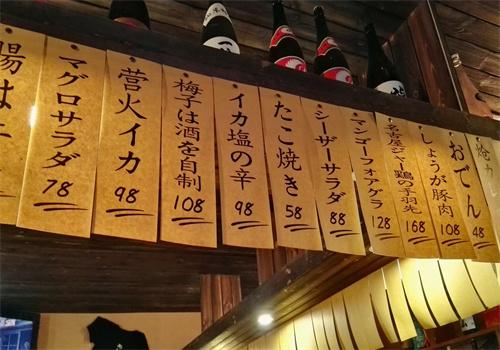 マグロサラダ
78
营火イカ
98
梅子は酒を自制
108
イカ塩の辛
98
たこ焼き
58
シーザーサラダ
88
マンゴーフォアグラ
128
名古屋ジャー鶏の手羽先
168
しょうが豚肉
108
おでん
48